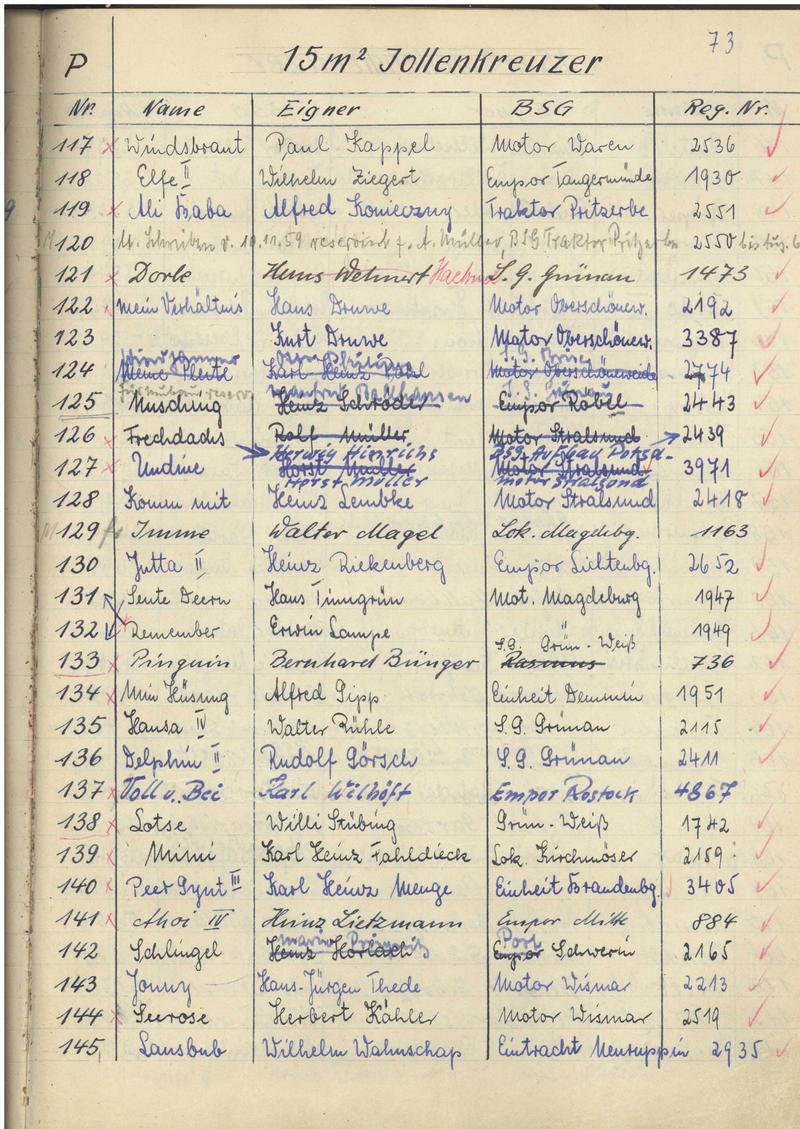 73
P 15m² Jollenkreuzer
Nr. Name Eigner BSG Reg. Nr.
117 x Windsbraut Paul Kappel Motor Waren 2536 ✓
118 Elfe II Wilhelm Ziegert Empor Tangermünde 1930 ✓
119 x Ali Baba Alfred Konieczny Traktor Pritzerbe 2551 ✓
120 lt. Schreiben v. 10.11.59 reserviert f. A. Müller, BSG Traktor Pritzerbe 2550 bis
121 x Dorle Hans Wehnert S.G. Grünau 1473 ✓
122 x mein Verhältnis Hans Druwe Motor Oberschönew. 2192 ✓
123 Kurt Druwe Motor Oberschönew. 3387 ✓
124 Meine Kleine Karl Heinz Pohl Motor Oberschöneweide 2774 ✓
125 Musching Heinz Schröder Empor Röbel 2443 ✓
126 x Frechdachs Rolf Müller Motor Stralsund 2439 ✓
Herwig Hinrichs BSG Aufbau Potsd-
127 x Undine Horst Müller Motor Stralsund 3971 ✓
Horst Müller Motor Stralsund
128 Komm mit Heinz Lembke Motor Stralsund 2418 ✓
129 Imme Walter Magel Lok. Magdebg. 1163
130 Jutta II Heinz Riekenberg Empor Lichtenbg. 2652 ✓
131 Seute Deern Hans Timmgrün Mot. Magdeburg 1947 ✓
132 Remember Erwin Lampe " 1949 ✓
S.G. Grün-Weiß
133 x Pinguin Bernhard Bünger Rasmus 736 ✓
134 x Min Hüsung Alfred Sipp Einheit Demmin 1951 ✓
135 Hansa IV Walter Rühle S.G. Grünau 2115 ✓
136 Delphin II Rudolf Görsch S.G. Grünau 2411 ✓
137 x Voll u. Bei Karl Wilhöft Empor Rostock 4867 ✓
138 x Lotse Willi Stübing Grün-Weiß 1742 ✓
139 x Mimi Karl Heinz Fahldieck Lok. Kirchmöser 2159 ✓
140 x Peer Gynt III Karl Heinz Menge Einheit Brandenbg. 3405 ✓
141 x Ahoi IV Heinz Lietzmann Empor Mitte 884 ✓
Post
142 Schlingel Heinz Empor Schwerin 2165 ✓
143 Jonny Hans-Jürgen Thede Motor Wismar 2213 ✓
144 x Seerose Herbert Kähler Motor Wismar 2519 ✓
145 Lausbub Wilhelm Wahnschap Eintracht Neuruppin 2935 ✓